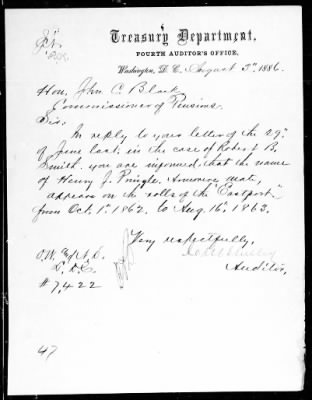 Treasury Department,
FOURTH AUDITOR'S OFFICE,
Washington, D. C. August 3d, 1886.
Hon. John C. Black
Commissioner of Pensions.
Sir:
In reply to your letter of the 29"
of June last, in the case of Robert B.
Smith, you are informed, that the name
of Henry J. Pringle, Armorer's mate,
appears on the rolls of the "Eastport"
from Oct. 1st 1862, to Aug. 16th 1863.
Very respectfully,
Auditor.
O. W. & N. D.
# 7,422
47